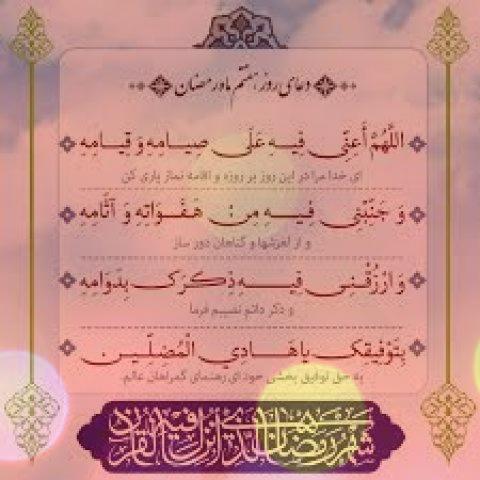 دعای روز هفتم ماه رمضان
اللَّهُمَّ أَعِنِّي فِيهِ عَلَى صِيَامِهِ وَ قِيَامِهِ
ای خدا مرا در این روز بر روزه و اقامه نماز یاری کن
وَ جَنِّبْنِي فِيهِ مِنْ هَفَوَاتِهِ وَ آثَامِهِ
و از لغزشها و گناهان دور ساز
وَ ارْزُقْنِي فِيهِ ذِكْرَكَ بِدَوَامِهِ
و ذکر دائم نصیبم فرما
بِتَوْفِيقِكَ يَا هَادِيَ الْمُضِلِّينَ
به حق توفیق بخشی خود ای رهنمای گمراهان عالم.
شهر رمضان الذی انزل فیه القرآن